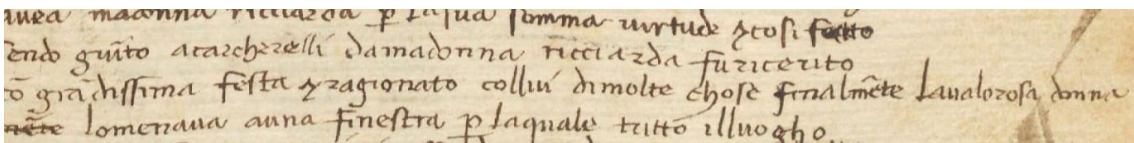 avea madonna ricciarda p̄ la sua somma virtude ⁊cosi fatto
sendo giūto acarcherelli damadonna ricciarda furicerito
cō grādissima festa ⁊ragionato collui dimolte chose finalmēte lavalorosa donna
lomenava auna finestra p̄ laquale tutto illuogho